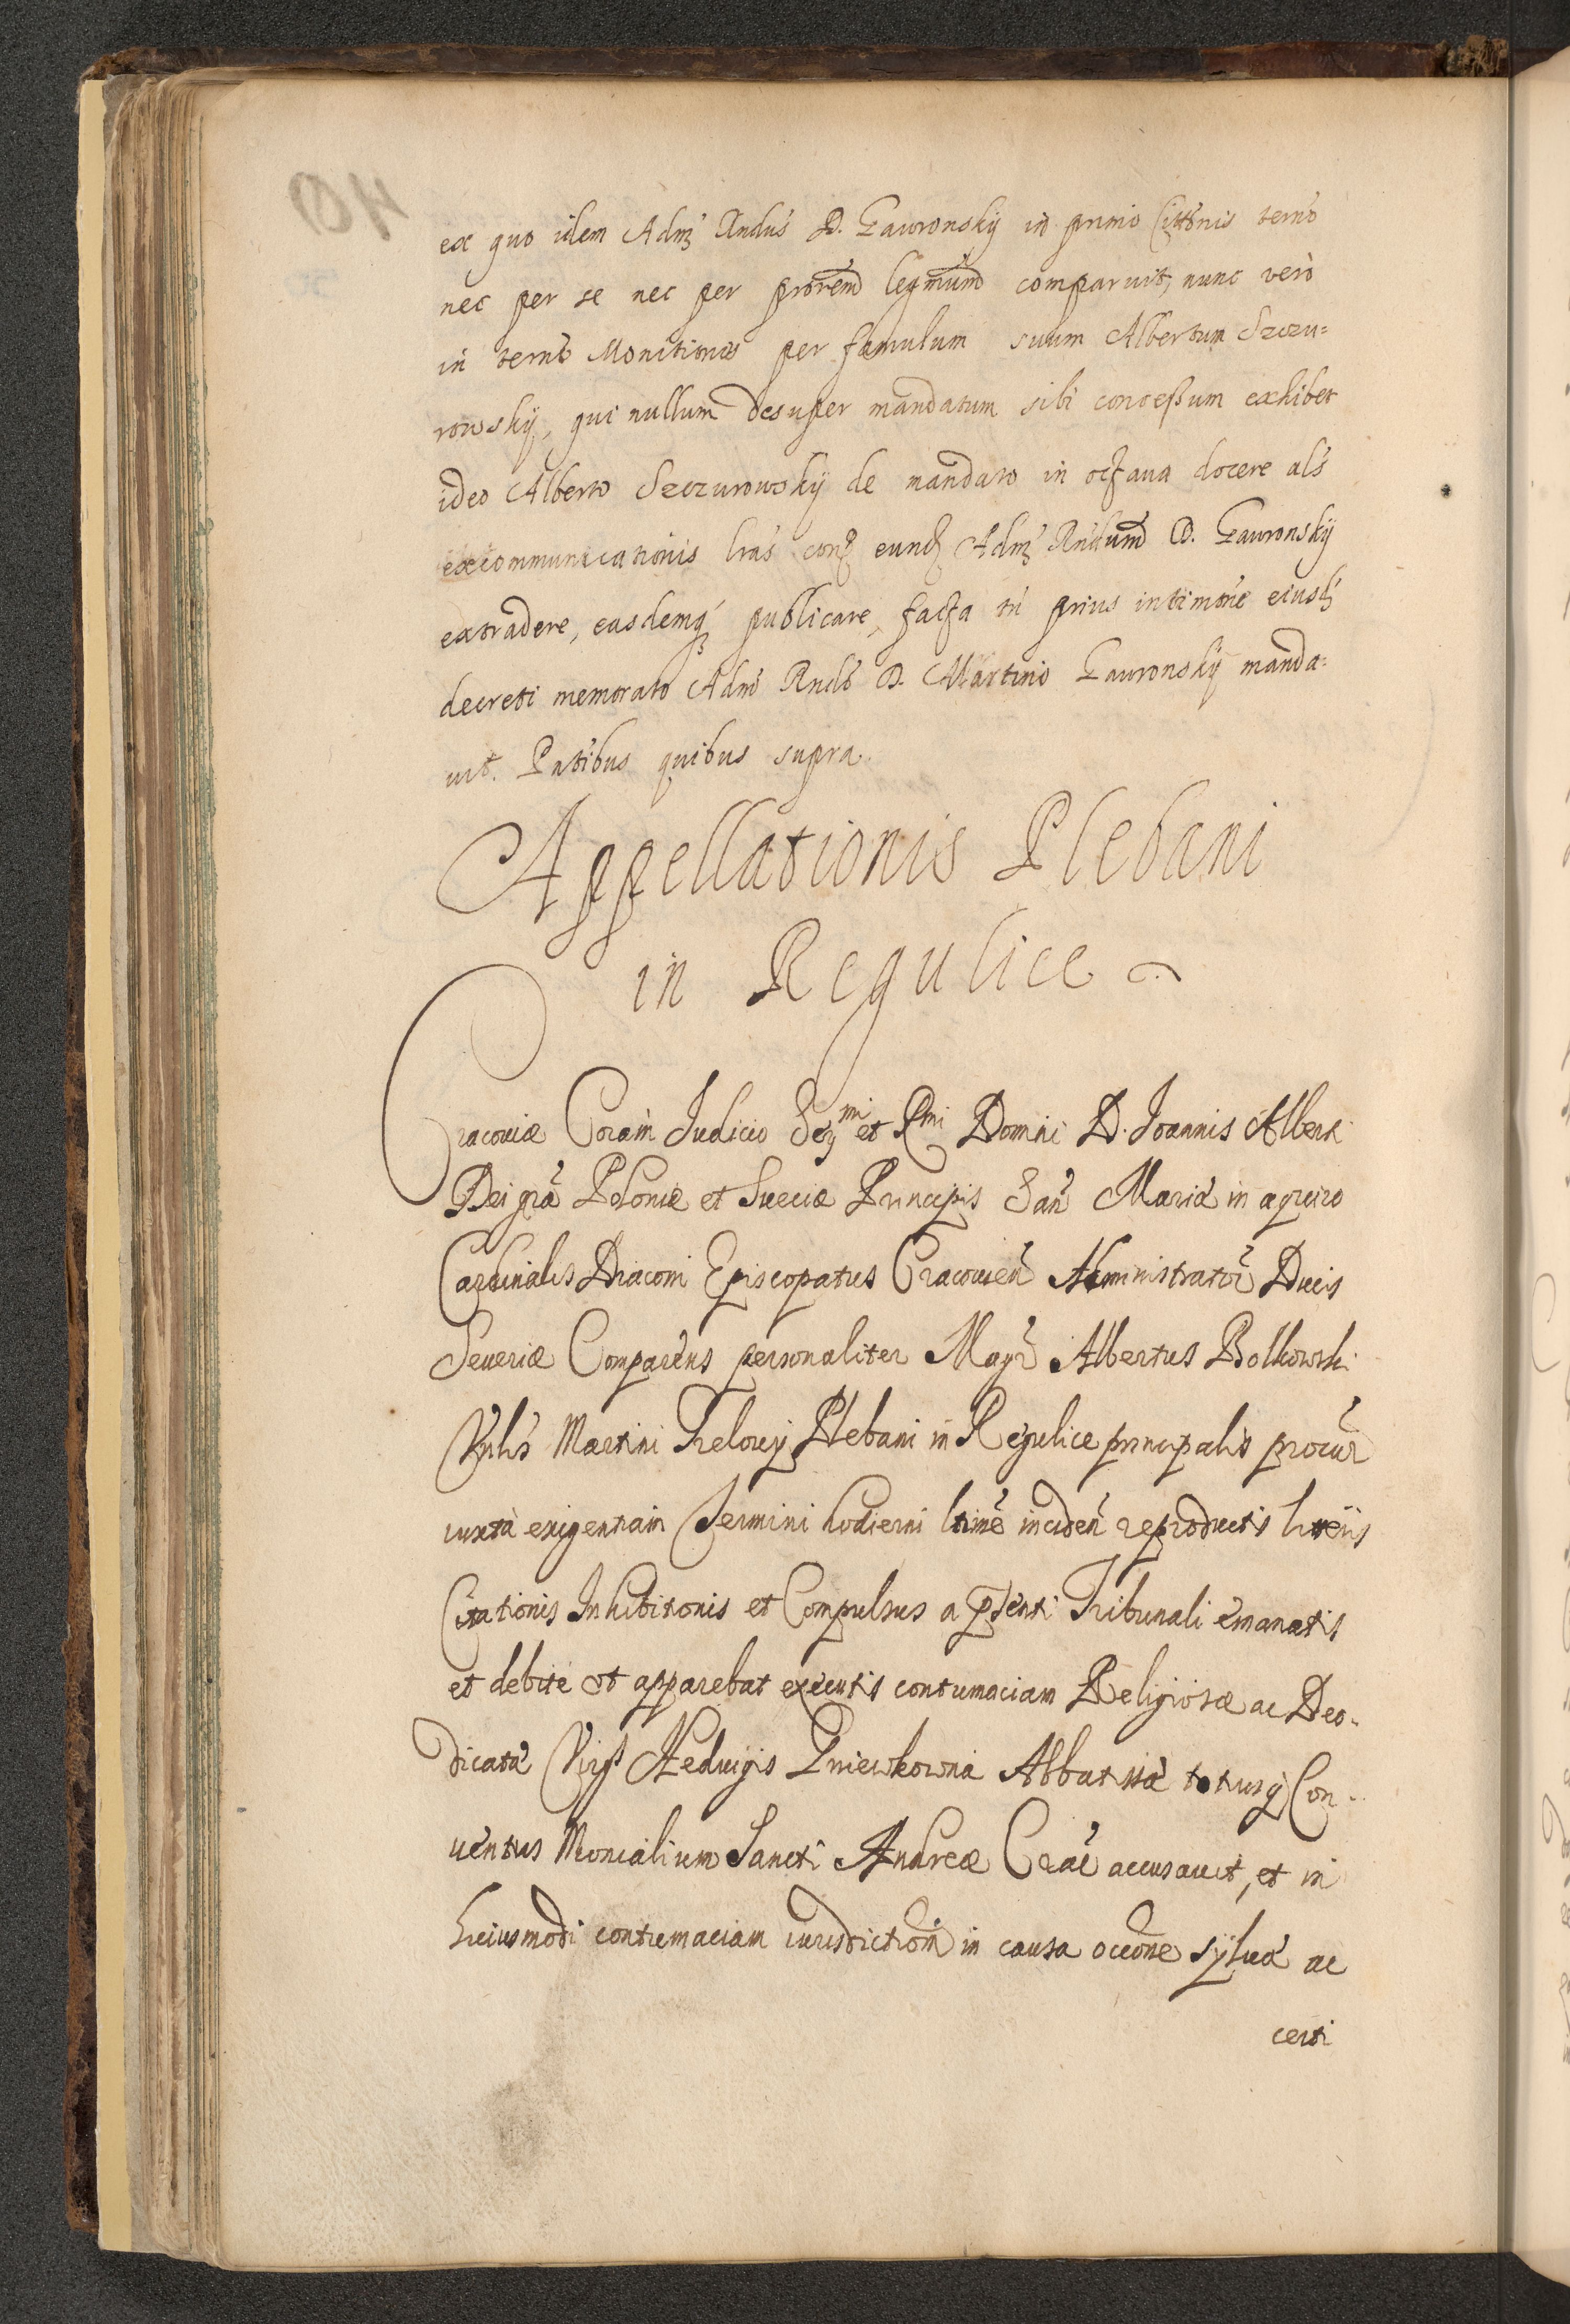 ex quo idem Adm̃ Rndús D. Gawronskÿ in primo Citt̃onis termõ
nec per se nec per prorem̃ legmum̃ comparuit, nunc verò
in termõ Monitionis per famulum suum Albertum Szczu=
rowskÿ, qui nullum desuper mandatum sibi concessum exhibet
ideo Alberto Szczurowskÿ de mandato in octaua docere als̃
excommunicationis lras̃ con̨ eund̨ Adm̃ Rndum̃ D. Gawronskÿ
extradere, easdemq́ publicare, facta tñ prius intimoñe eiusd̨
decreti memorato Admõ Rndõ D. Martino Gawronskÿ manda=
uit. Pñtibus quibus supra.
Appellationis Plebani
in Regulice
Cracouiæ Coram Judicio Ser̃mi et Rmi Domini D. Joannis Alberti
Dei grã Poloniæ et Sueciæ Principis San̉ Mariæ in aquiro
Cardinalis Diaconi Episcopatus Cracouien̉ Administrator̉ Ducis
Seueriæ Comparens personaliter Magr̃ Albertus Bolkowski
Vnlis̃ Martini Trelowÿ Plebani in Regulice principalis procur̃
iuxta exigentiam Termini hodierni ltimẽ inciden̉ reproductis litteris
Citationis Inhibitionis et Compulsus a pñti Tribunali emanatis
et debite ut apparebat executis contumaciam Religiosæ ac Deo-
dicatæ Virg̃ Heduigis Pniewkowna Abbatissæ totiusq́ Con-
uentus Monialium Sancti Andreæ Crac̉ accusauit, et in
huiusmodi contumaciam iurisdictiom̃ in causa occõne syluæ ac
certi
104